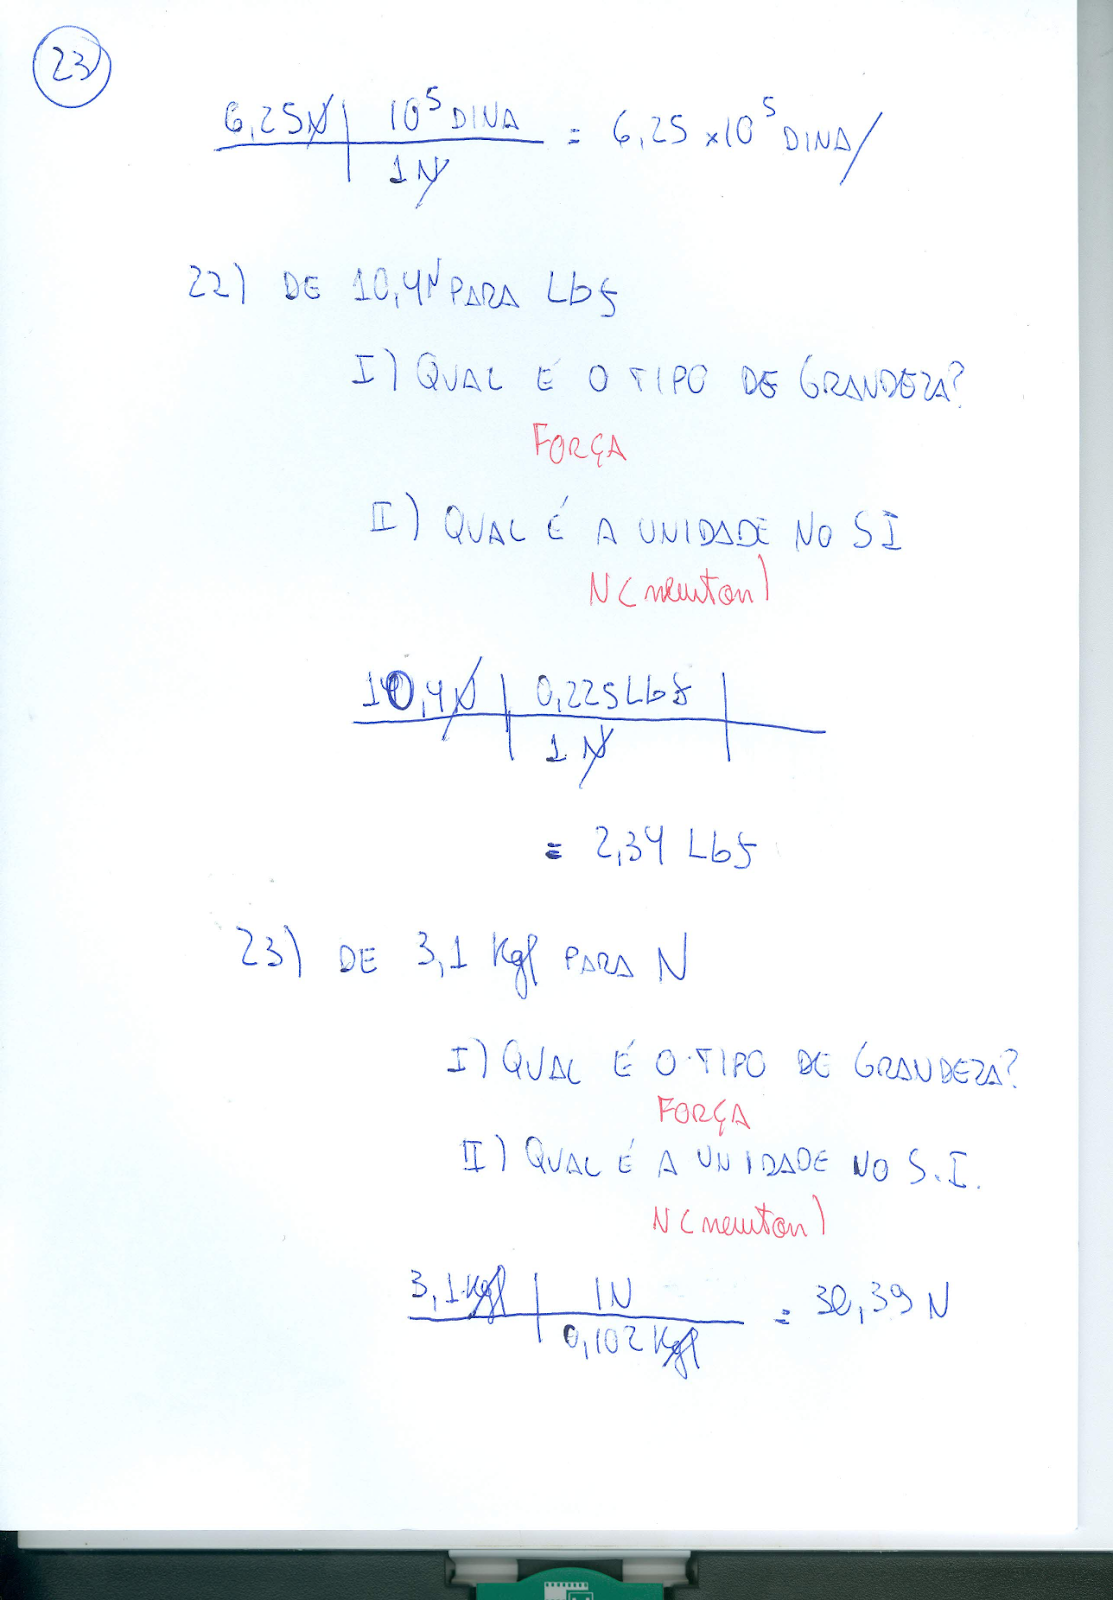 23
6,25N | 10⁵ DINA = 6,25 x10⁵ DINA/
1N
22) DE 10,4N PARA Lbf
I) QUAL É O TIPO DE GRANDEZA?
FORÇA
II) QUAL É A UNIDADE NO SI
N (newton)
10,4N | 0,225 Lbf |
1N
= 2,34 Lbf
23) DE 3,1 Kgf PARA N
I) QUAL É O TIPO DE GRANDEZA?
FORÇA
II) QUAL É A UNIDADE NO S.I.
N (newton)
3,1 Kgf | 1N = 30,39 N
0,102 Kgf